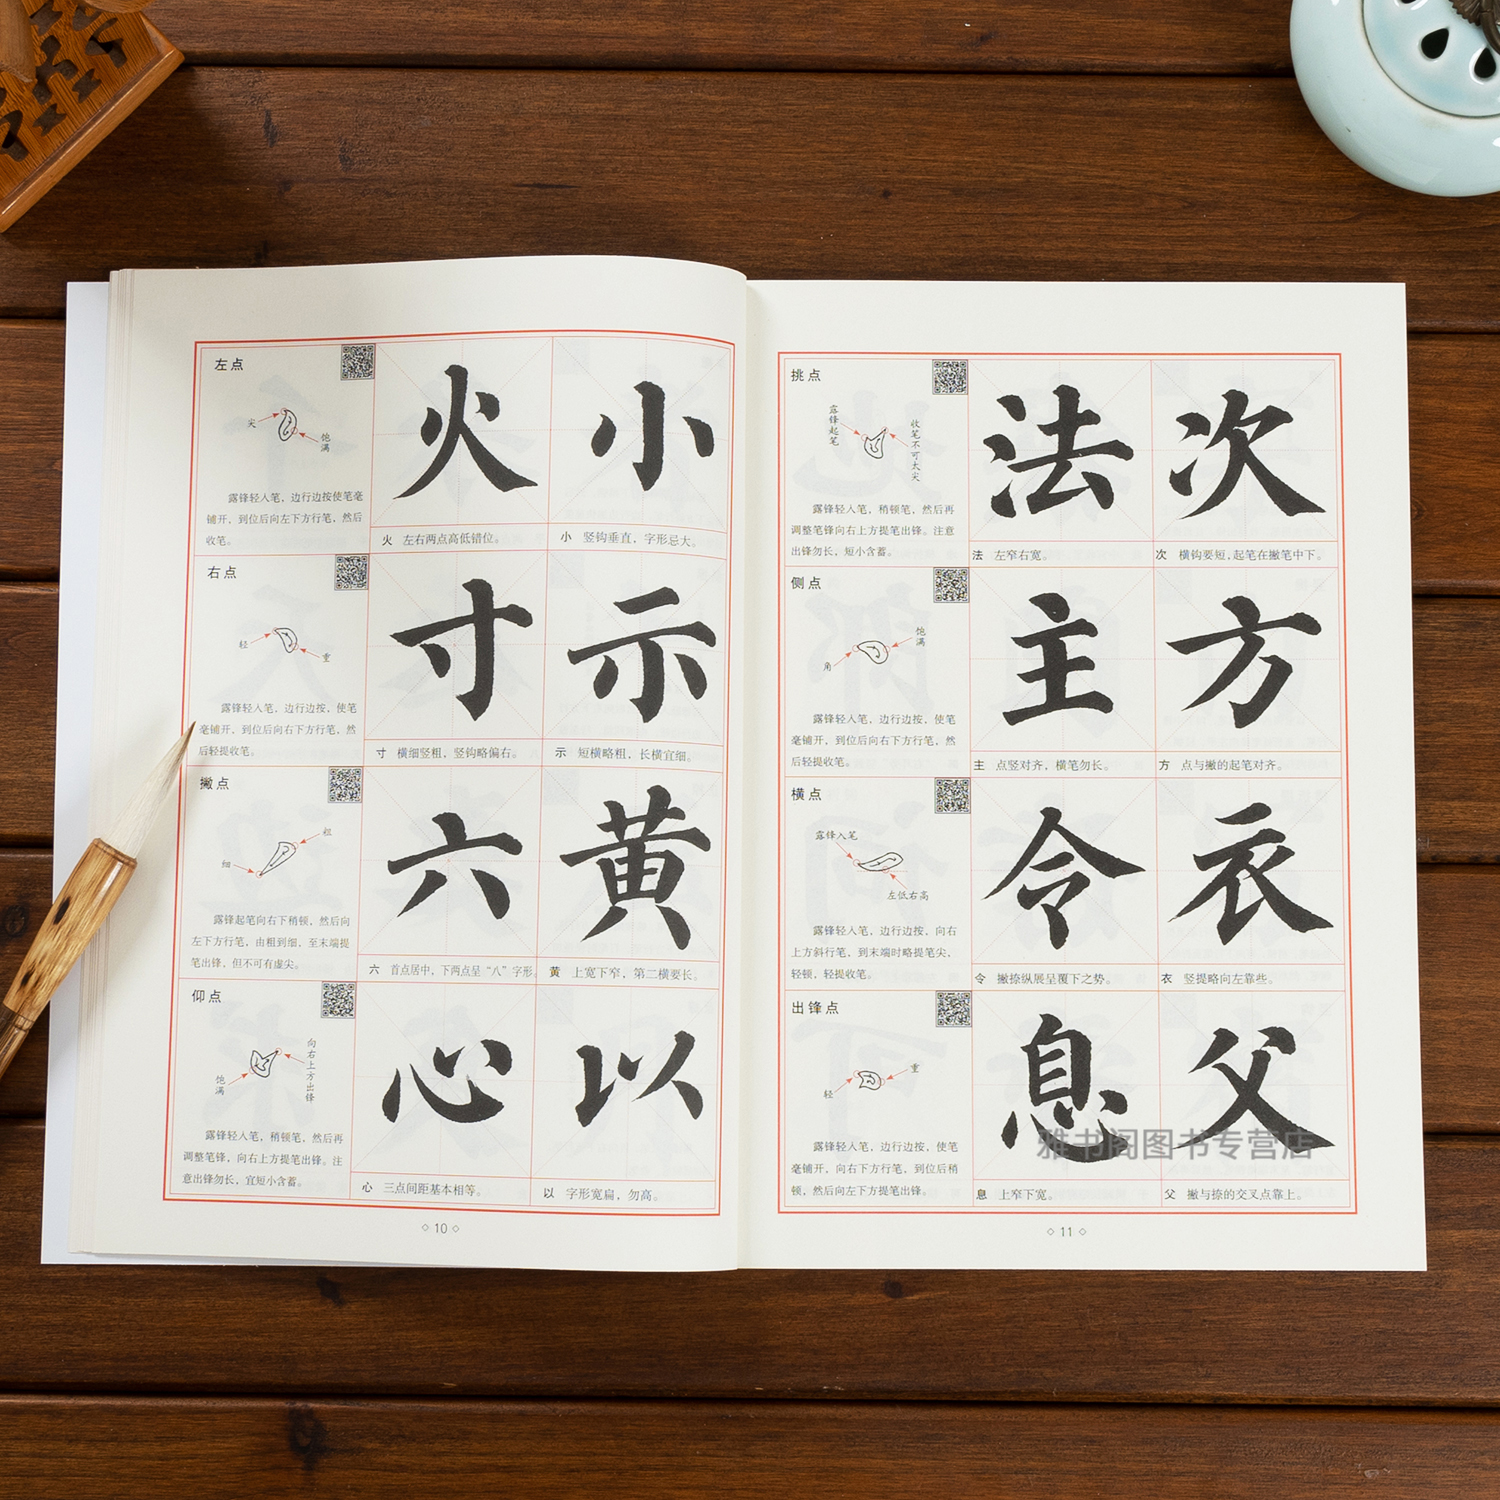 左点
尖
饱满
露锋轻入笔，边行边按使笔毫
铺开，到位后向左下方行笔，然后
收笔。
火
小
火 左右两点高低错位。
小 竖钩垂直，字形忌大。
右点
轻
重
露锋轻入笔，边行边按，使笔
毫铺开，到位后向右下方行笔，然
后轻提收笔。
寸
示
寸 横细竖粗，竖钩略偏右。
示 短横略粗，长横宜细。
撇点
粗
细
露锋起笔向右下稍顿，然后向
左下方行笔，由粗到细，至末端提
笔出锋，但不可有虚尖。
六
黄
六 首点居中，下两点呈“八”字形。
黄 上宽下窄，第二横要长。
仰点
向右上方出锋
饱满
露锋轻入笔，稍顿笔，然后再
调整笔锋，向右上方提笔出锋。注
意出锋勿长，宜短小含蓄。
心
以
心 三点间距基本相等。
以 字形宽扁，勿高。
10
挑点
露锋起笔
收笔不可太尖
露锋轻入笔，稍顿笔，然后再
调整笔锋向右上方提笔出锋。注意
出锋勿长，短小含蓄。
法
次
法 左窄右宽。
次 横钩要短，起笔在撇笔中下。
侧点
饱满
角
露锋轻入笔，边行边按，使笔
毫铺开，到位后向右下方行笔，然
后轻提收笔。
主
方
主 点竖对齐，横笔勿长。
方 点与撇的起笔对齐。
横点
露锋入笔
左低右高
露锋轻入笔，边行边按，向右
上方斜行笔，到末端时略提笔尖，
轻顿，轻提收笔。
令
衣
令 撇捺纵展呈覆下之势。
衣 竖提略向左靠些。
出锋点
重
轻
露锋轻入笔，边行边按，使笔
毫铺开，向右下方行笔，到位后稍
顿，然后向左下方提笔出锋。
息
父
息 上窄下宽。
父 撇与捺的交叉点靠上。
11
雅书阁图书专营店